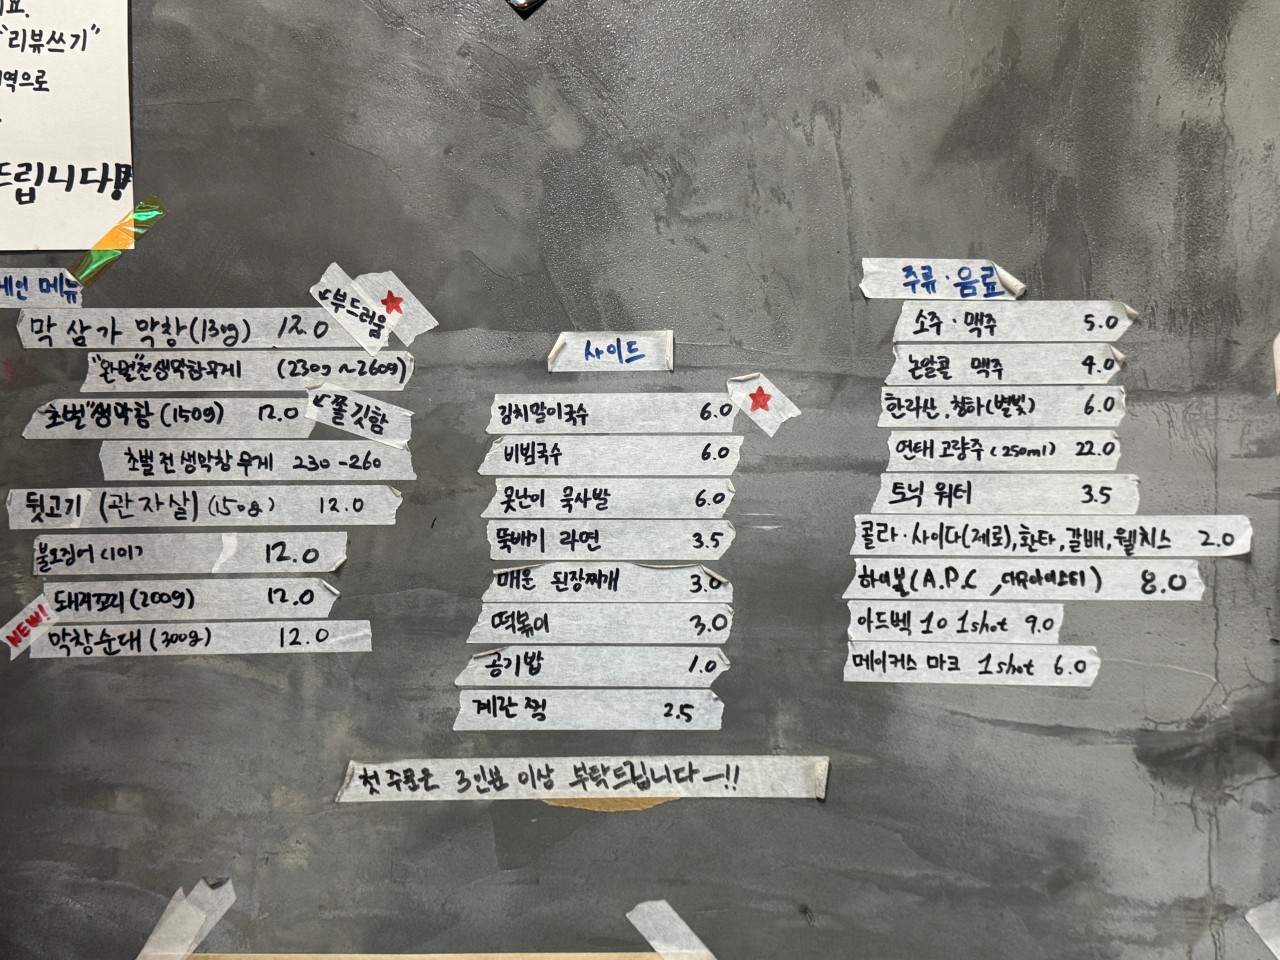 요.
"리뷰쓰기"
역으로
드립니다!
메인 메뉴
막삼가 막창(130g) 12.0
←부드러움
"완벌"전생막창무게 (230g~260g)
초벌"생막창(150g) 12.0
←쫄깃함
초벌전생막창무게 230-260
뒷고기 (관자살)(150g) 12.0
불오징어(1미) 12.0
돼지꼬리(200g) 12.0
NEW!
막창순대(300g) 12.0
사이드
김치말이국수 6.0
비빔국수 6.0
못난이 묵사발 6.0
뚝배기 라면 3.5
매운 된장찌개 3.0
떡볶이 3.0
공기밥 1.0
계란찜 2.5
첫 주문은 3인분 이상 부탁드립니다-!!
주류·음료
소주·맥주 5.0
논알콜 맥주 4.0
한라산, 청하(별빛) 6.0
연태고량주(250ml) 22.0
토닉 워터 3.5
콜라·사이다(제로), 환타, 갈배, 웰치스 2.0
하이볼(A.P.C, 아이스티) 8.0
아드벡 10 1shot 9.0
메이커스 마크 1shot 6.0